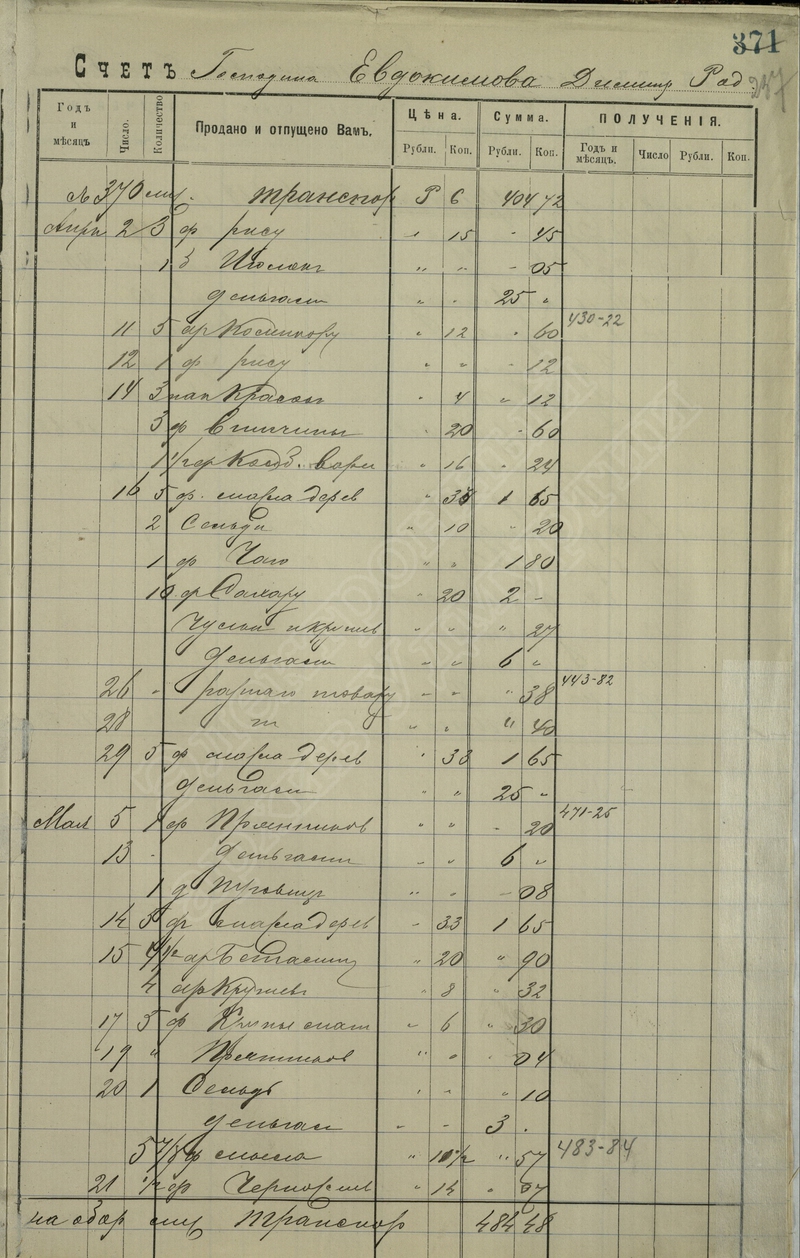 371
237
Счетъ Господина Евдокимова Димитр Род
Годъ и мѣсяцъ Число. Количество Продано и отпущено Вамъ. Цѣна. Сумма. ПОЛУЧЕНІЯ.
Рубли. Коп. Рубли. Коп. Годъ и мѣсяцъ. Число Рубли. Коп.
№ 370 транспор Р 6 404 72
Апрл 2 3 ф рису " 15 - 45
1 " " - 05
деньгами " - 25 "
11 5 ар " 12 " 60 430-22
12 1 ф рису " " - 12
14 3 пап - 4 " 12
3 ф Ветчины - 20 - 60
1 1/2 ф вари " 16 - 24
16 5 ф. масла дерев " 33 1 65
2 Сельди " 10 " 20
1 ф Чаю " " 1 80
10 ф Сахару - 20 2 -
Чулки и кружев " " " 27
деньгами " " 6 "
26 - разнаго товару - - " 38 443-82
28 тт " " " 40
29 5 ф масла дерев " 33 1 65
деньгами " " 25 "
Мая 5 1 ф Пряников " " - 20 471-25
13 - деньгами " " 6 "
1 д Пуговиц " - - 08
14 5 ф масла дерев - 33 1 65
15 4 1/2 ар " 20 " 90
4 ар Кружев " 8 " 32
17 5 ф Крупы " 6 " 30
19 " Пряников " " - 04
20 1 Сельдь " " " 10
деньгам - - 3 .
5 7/8 ф мыла " 10 1/2 " 57 483-84
21 1/2 ф Чернослив " 14 " 07
на обор транспор 484 48